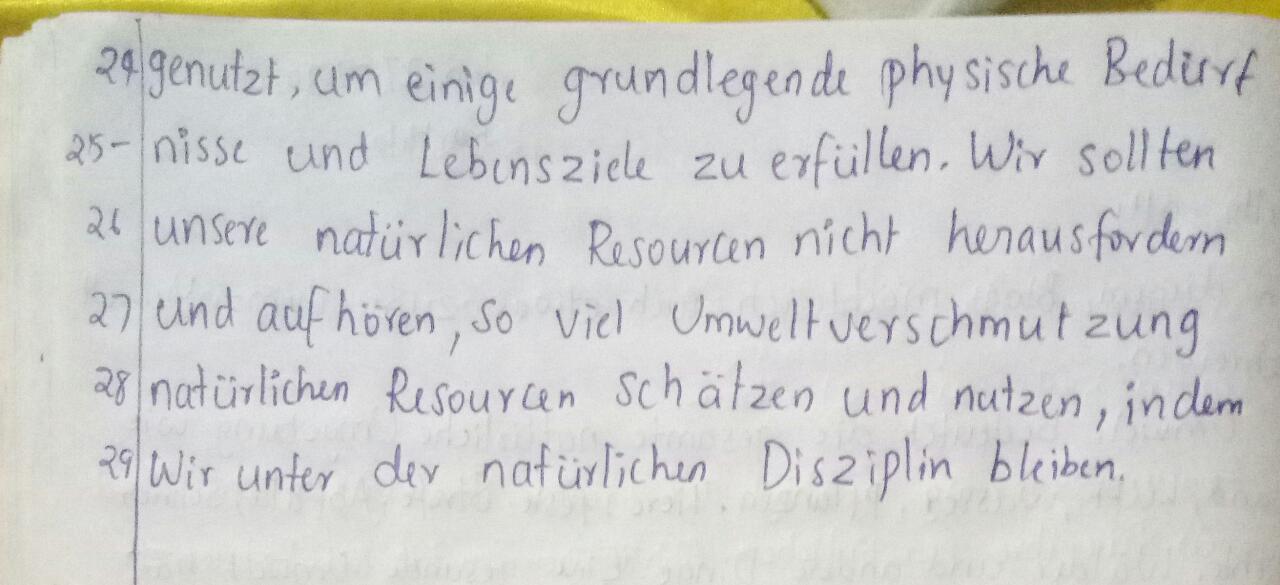 24 genutzt, um einige grundlegende physische Bedürf
25- nisse und Lebensziele zu erfüllen. Wir sollten
26 unsere natürlichen Resourcen nicht herausfordern
27 und aufhören, so viel Umweltverschmutzung
28 natürlichen Resourcen schätzen und nutzen, indem
29 Wir unter der natürlichen Disziplin bleiben.